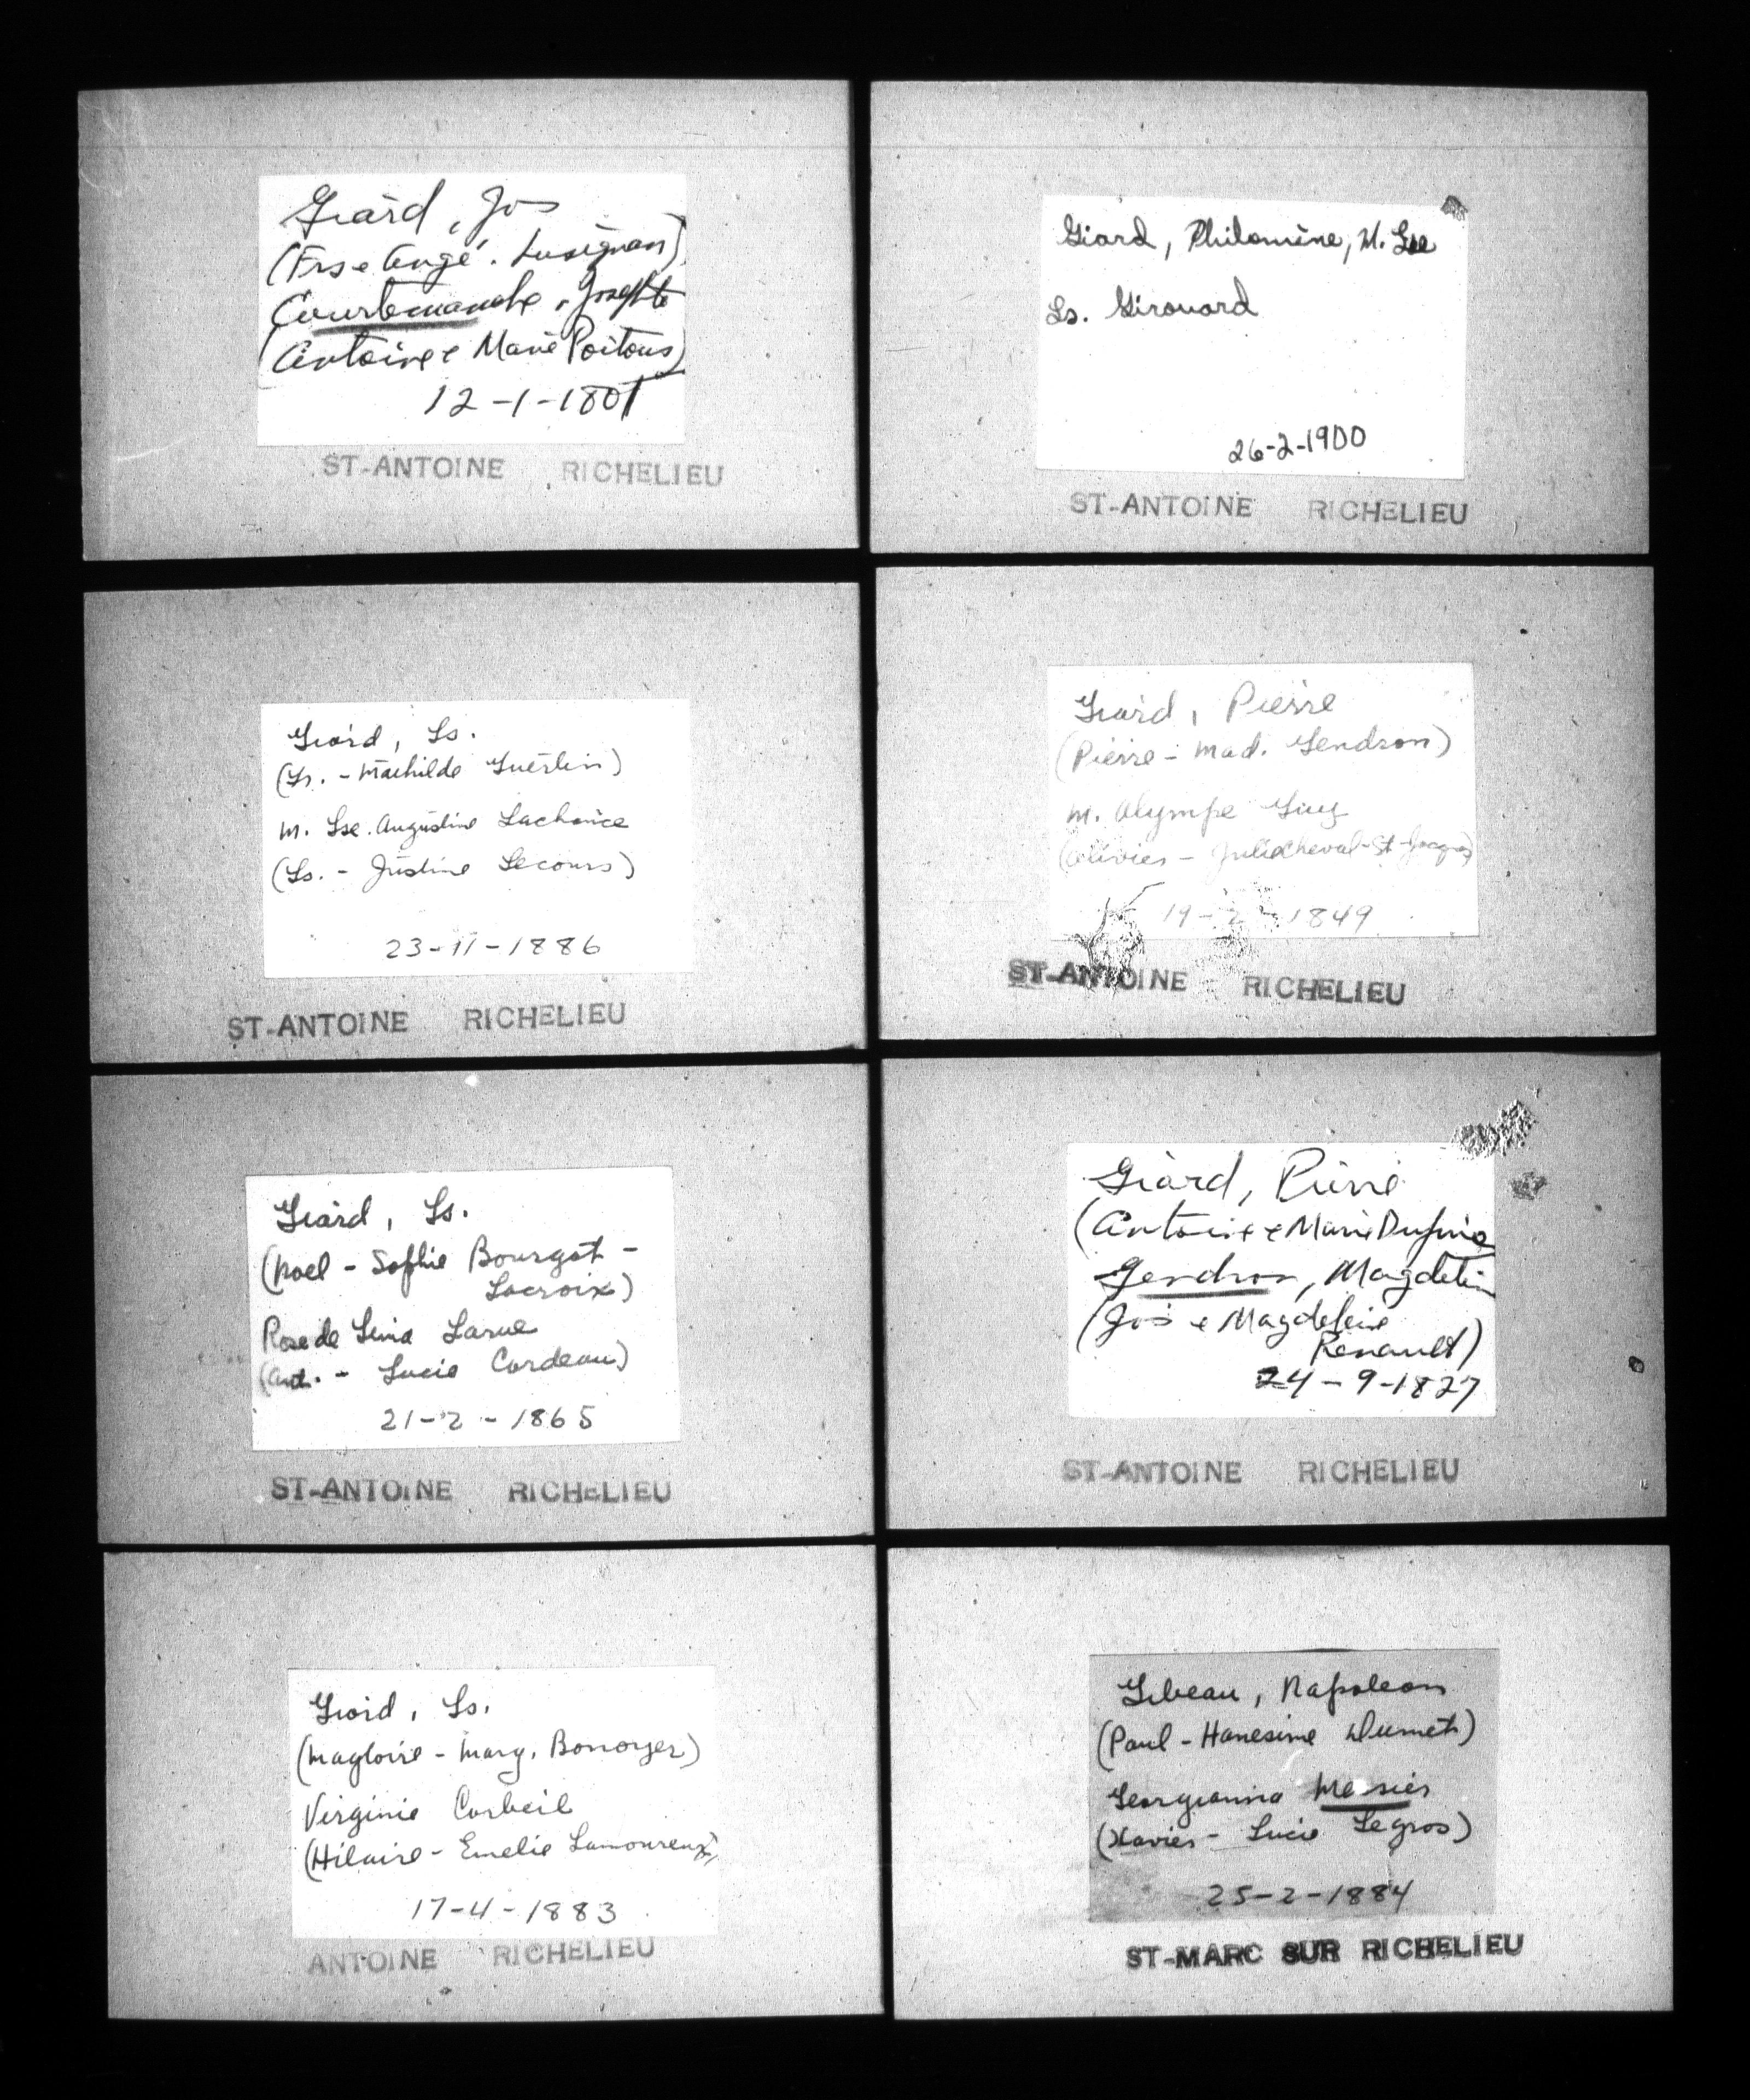 Giard, Jos
(Frs e Angé. Lusignan)
Courtemanche, Josephte
(Antoine e Marie Poitous)
12-1-1801
ST-ANTOINE RICHELIEU
Giard, Ls.
(Ls. - Mathilde Guertin)
M. Lse. Augustine Lachance
(Ls. - Justine Lecours)
23-11-1886
ST-ANTOINE RICHELIEU
Giard, Ls.
(Noel - Sophie Bourgot -
Lacroix)
Rose de Lima Larue
(Ant. - Lucie Cordeau)
21-2-1865
ST-ANTOINE RICHELIEU
Giard, Ls.
(Magloire - Marg. Bonoyer)
Virginie Corbeil
(Hilaire - Emelie Lamoureux)
17-4-1883
ANTOINE RICHELIEU
Giard, Philomène, M. Lse
Ls. Girouard
26-2-1900
ST-ANTOINE RICHELIEU
Giard, Pierre
(Pierre - Mad. Gendron)
M. Olympe Guy
(Olivier - Julie Cheval-St-Jacques)
19-2-1849
ST-ANTOINE RICHELIEU
Giard, Pierre
(Antoine e Marie Dupré
Gendron, Magdelein
(Jos e Magdeleine
Renault)
24-9-1827
ST-ANTOINE RICHELIEU
Gibeau, Napoleon
(Paul - Hanesime Dumet)
Georgianna Messier
(Xavier - Lucie Legros)
25-2-1884
ST-MARC SUR RICHELIEU